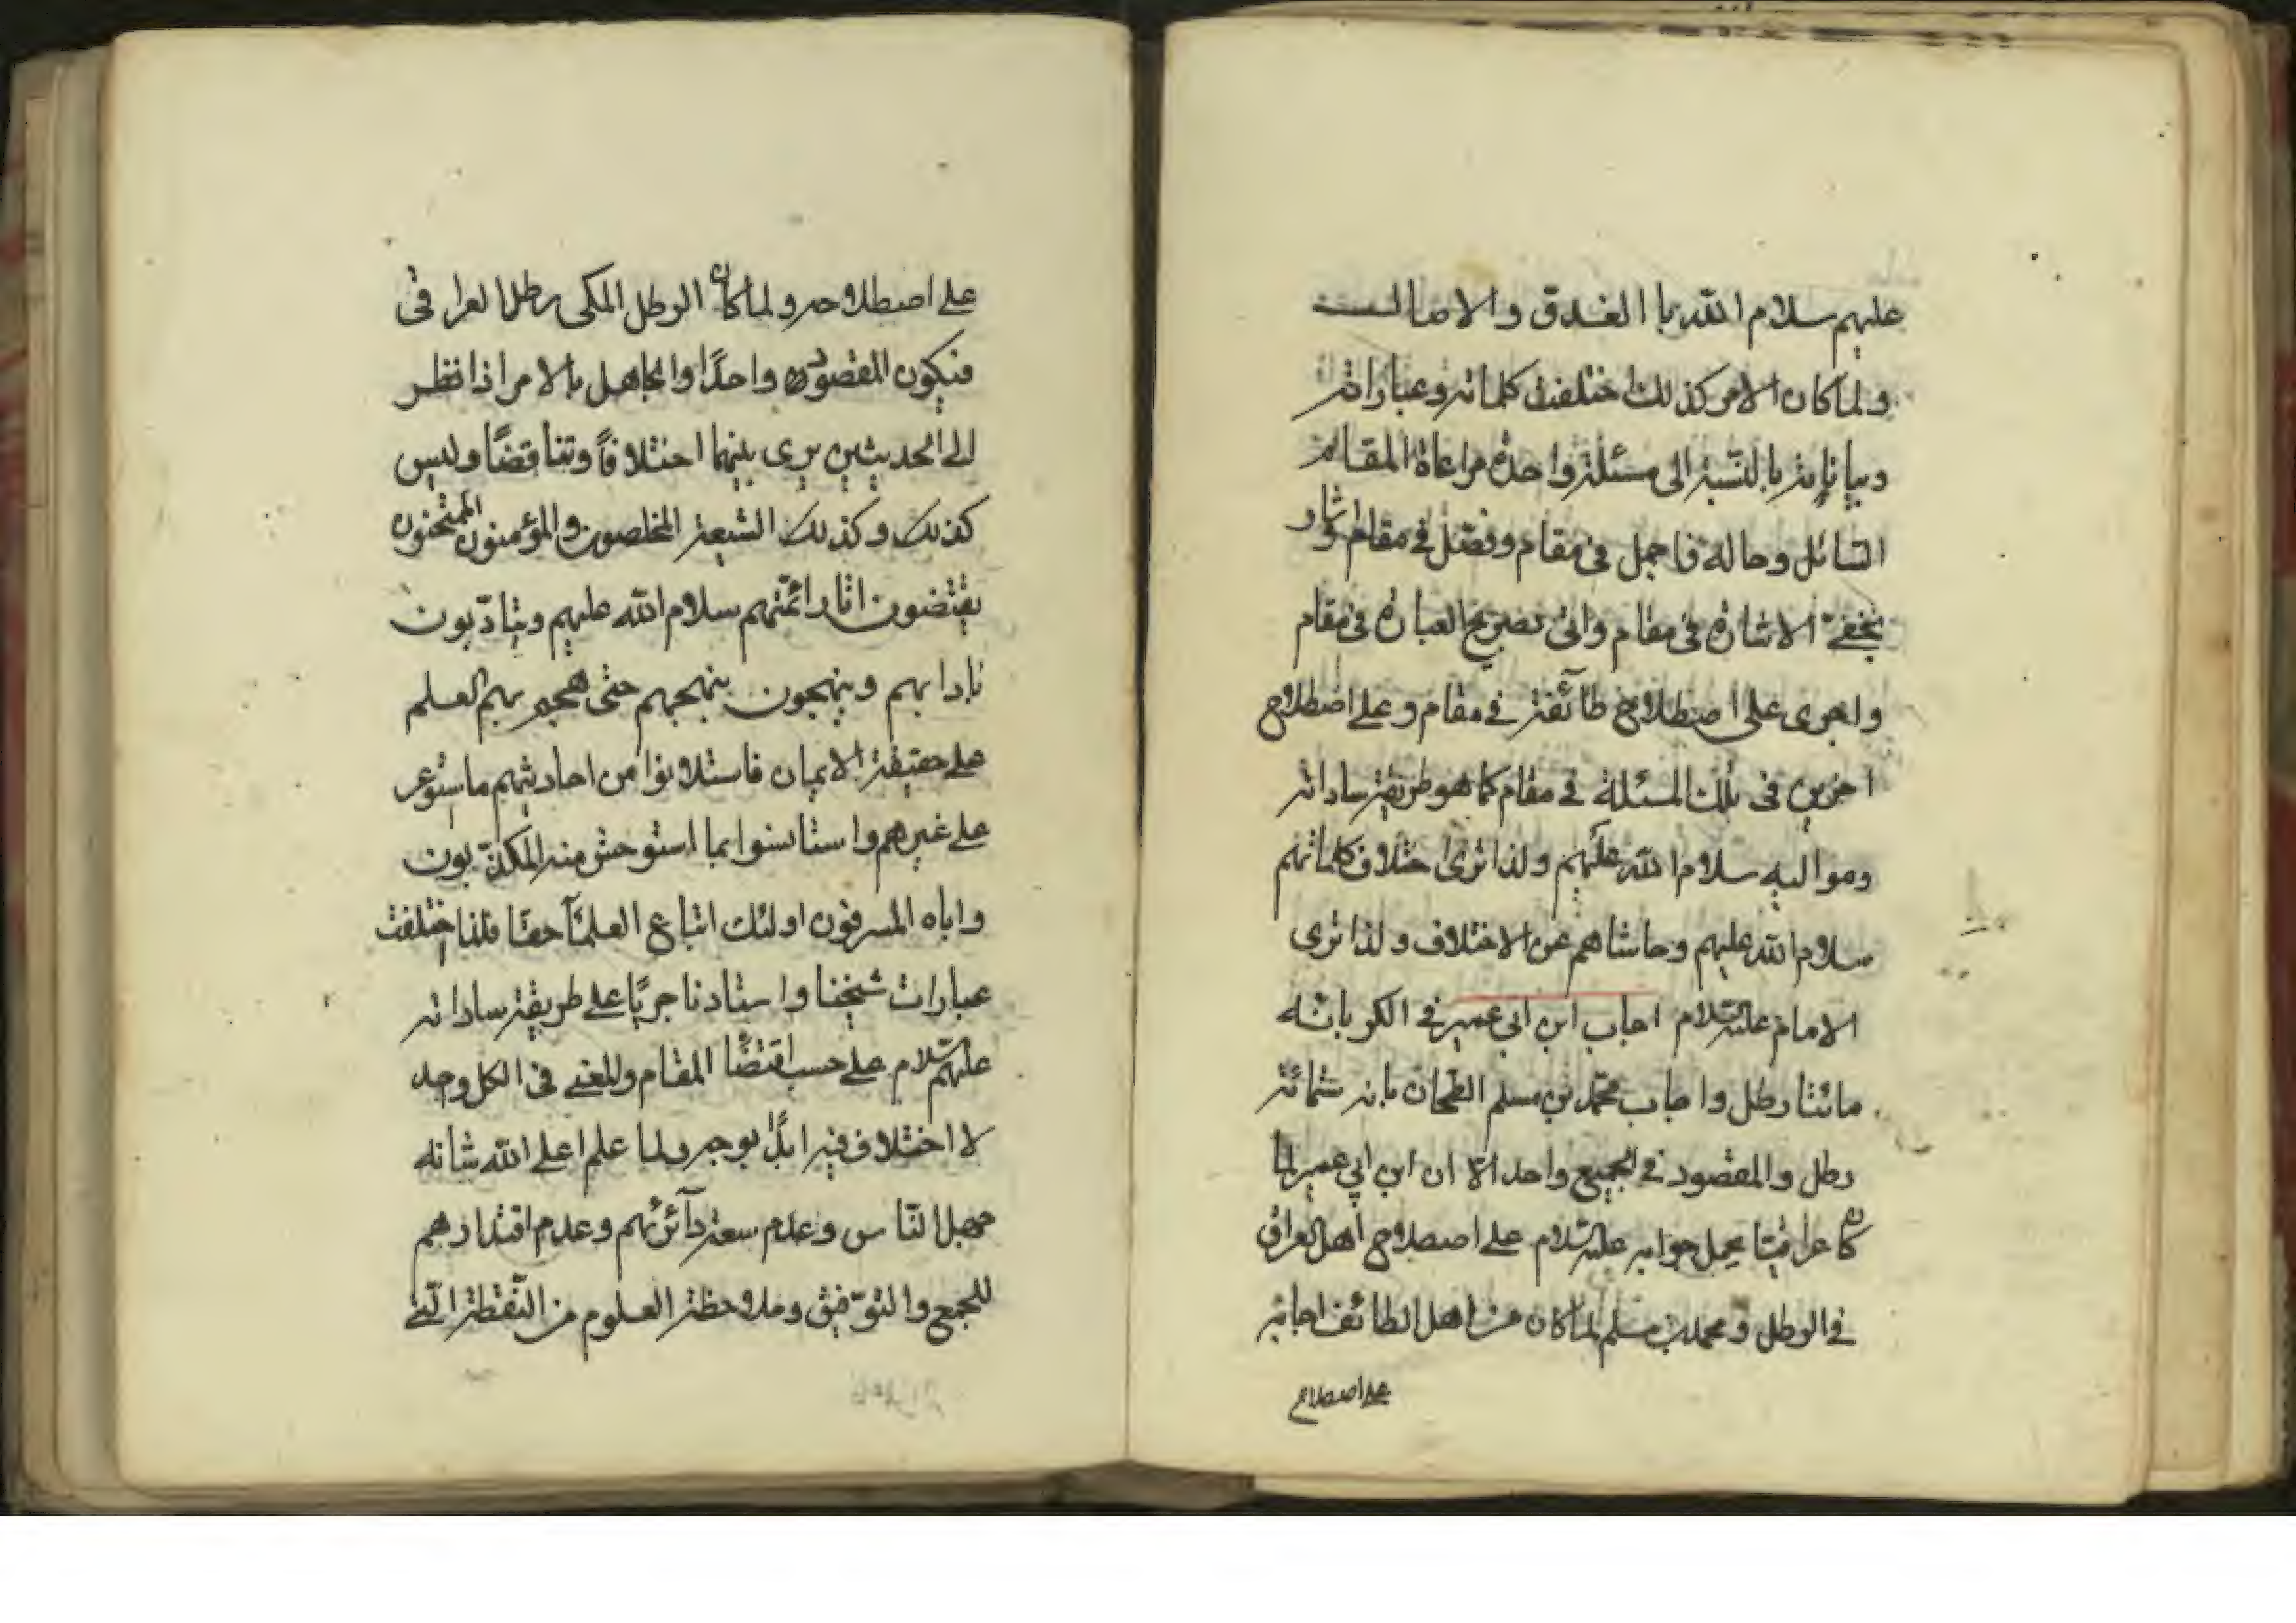 عليهم سلام الله بالغدو والاصال
ولما كان الامر كذلك اختلفت كلماته وعباراته
وبياناته بالنسبة الى مسئلة واحدة مراعاة لمقام
السائل وحاله فاجمل في مقام وفصّل في مقام واشار
بخفي الاشارة في مقام واتى بصريح العبارة في مقام
واجرى على اصطلاح طائفة في مقام وعلى اصطلاح
اخرين في تلك المسئلة في مقام كما هو طريقة ساداته
ومواليه سلام الله عليهم ولذا ترى اختلاف كلماتهم
سلام الله عليهم وحاشاهم عن الاختلاف ولذا ترى
الامام عليه السلام اجاب ابن ابي عمير في الكر بانه
مائتا رطل واجاب محمد بن مسلم الطحان بانه ستمائة
رطل والمقصود في الجميع واحد الا ان ابن ابي عمير لما
كان عراقيتا يحمل جوابه عليه السلام على اصطلاح اهل العراق
في الرطل ومحمد بن مسلم لما كان من اهل الطائف اجابه
على اصطلاح
على اصطلاحه ولما كان الرطل المكى رطل العراقى
فيكون المقصود واحدًا والجاهل بالامر اذا نظر
الى الحديثين يرى بينهما اختلافًا وتناقضًا وليس
كذلك وكذلك الشيعة المخلصون والمؤمنون الممتحنون
يقتضون اثار ائمّتهم سلام الله عليهم ويتادّبون
بادابهم وينهجون بنهجهم حتى هجم بهم العلم
على حقيقة الايمان فاستلانوا من احاديثهم ما استوعر
على غيرهم واستانسوا بما استوحش منه المكذّبون
واباه المسرفون اولئك اتباع العلمآ حقا فلذا اختلفت
عبارات شيخنا واستادنا جريًا على طريقة ساداته
عليهم السلام على حسب اقتضا المقام والمعنى في الكل وجه
لا اختلاف فيه ابدًا بوجه ولما علم اعلى الله شانه
جهل النّاس وعدم سعة دآئرتهم وعدم اقتدارهم
للجمع والتوّفيق وملاحظة العلوم من النّقطة الّتي